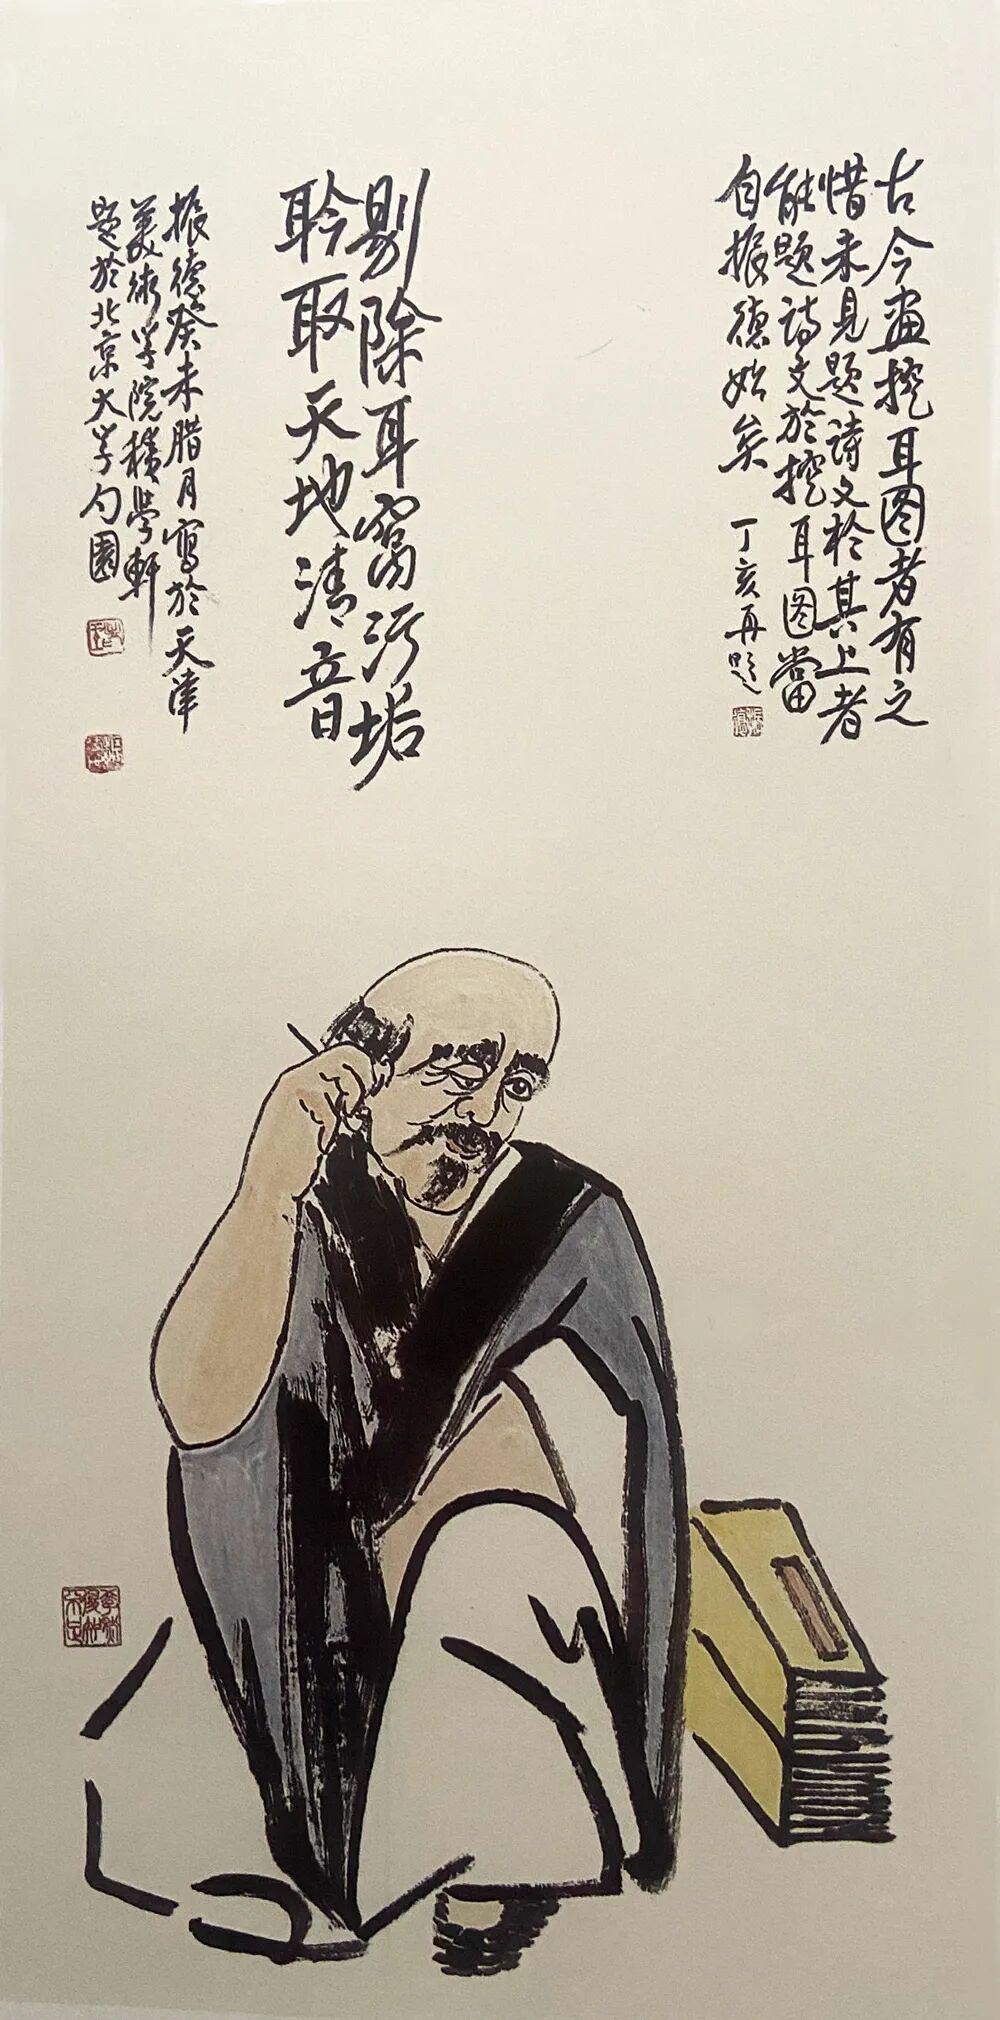 古今画挖耳图者有之
惜未见题诗文於其上者
能题诗文於挖耳图當
自振德始矣
丁亥再题
剔除耳窝污垢
聆取天地清音
振德癸未腊月寫於天津
美術学院積學軒
题於北京大学勺園